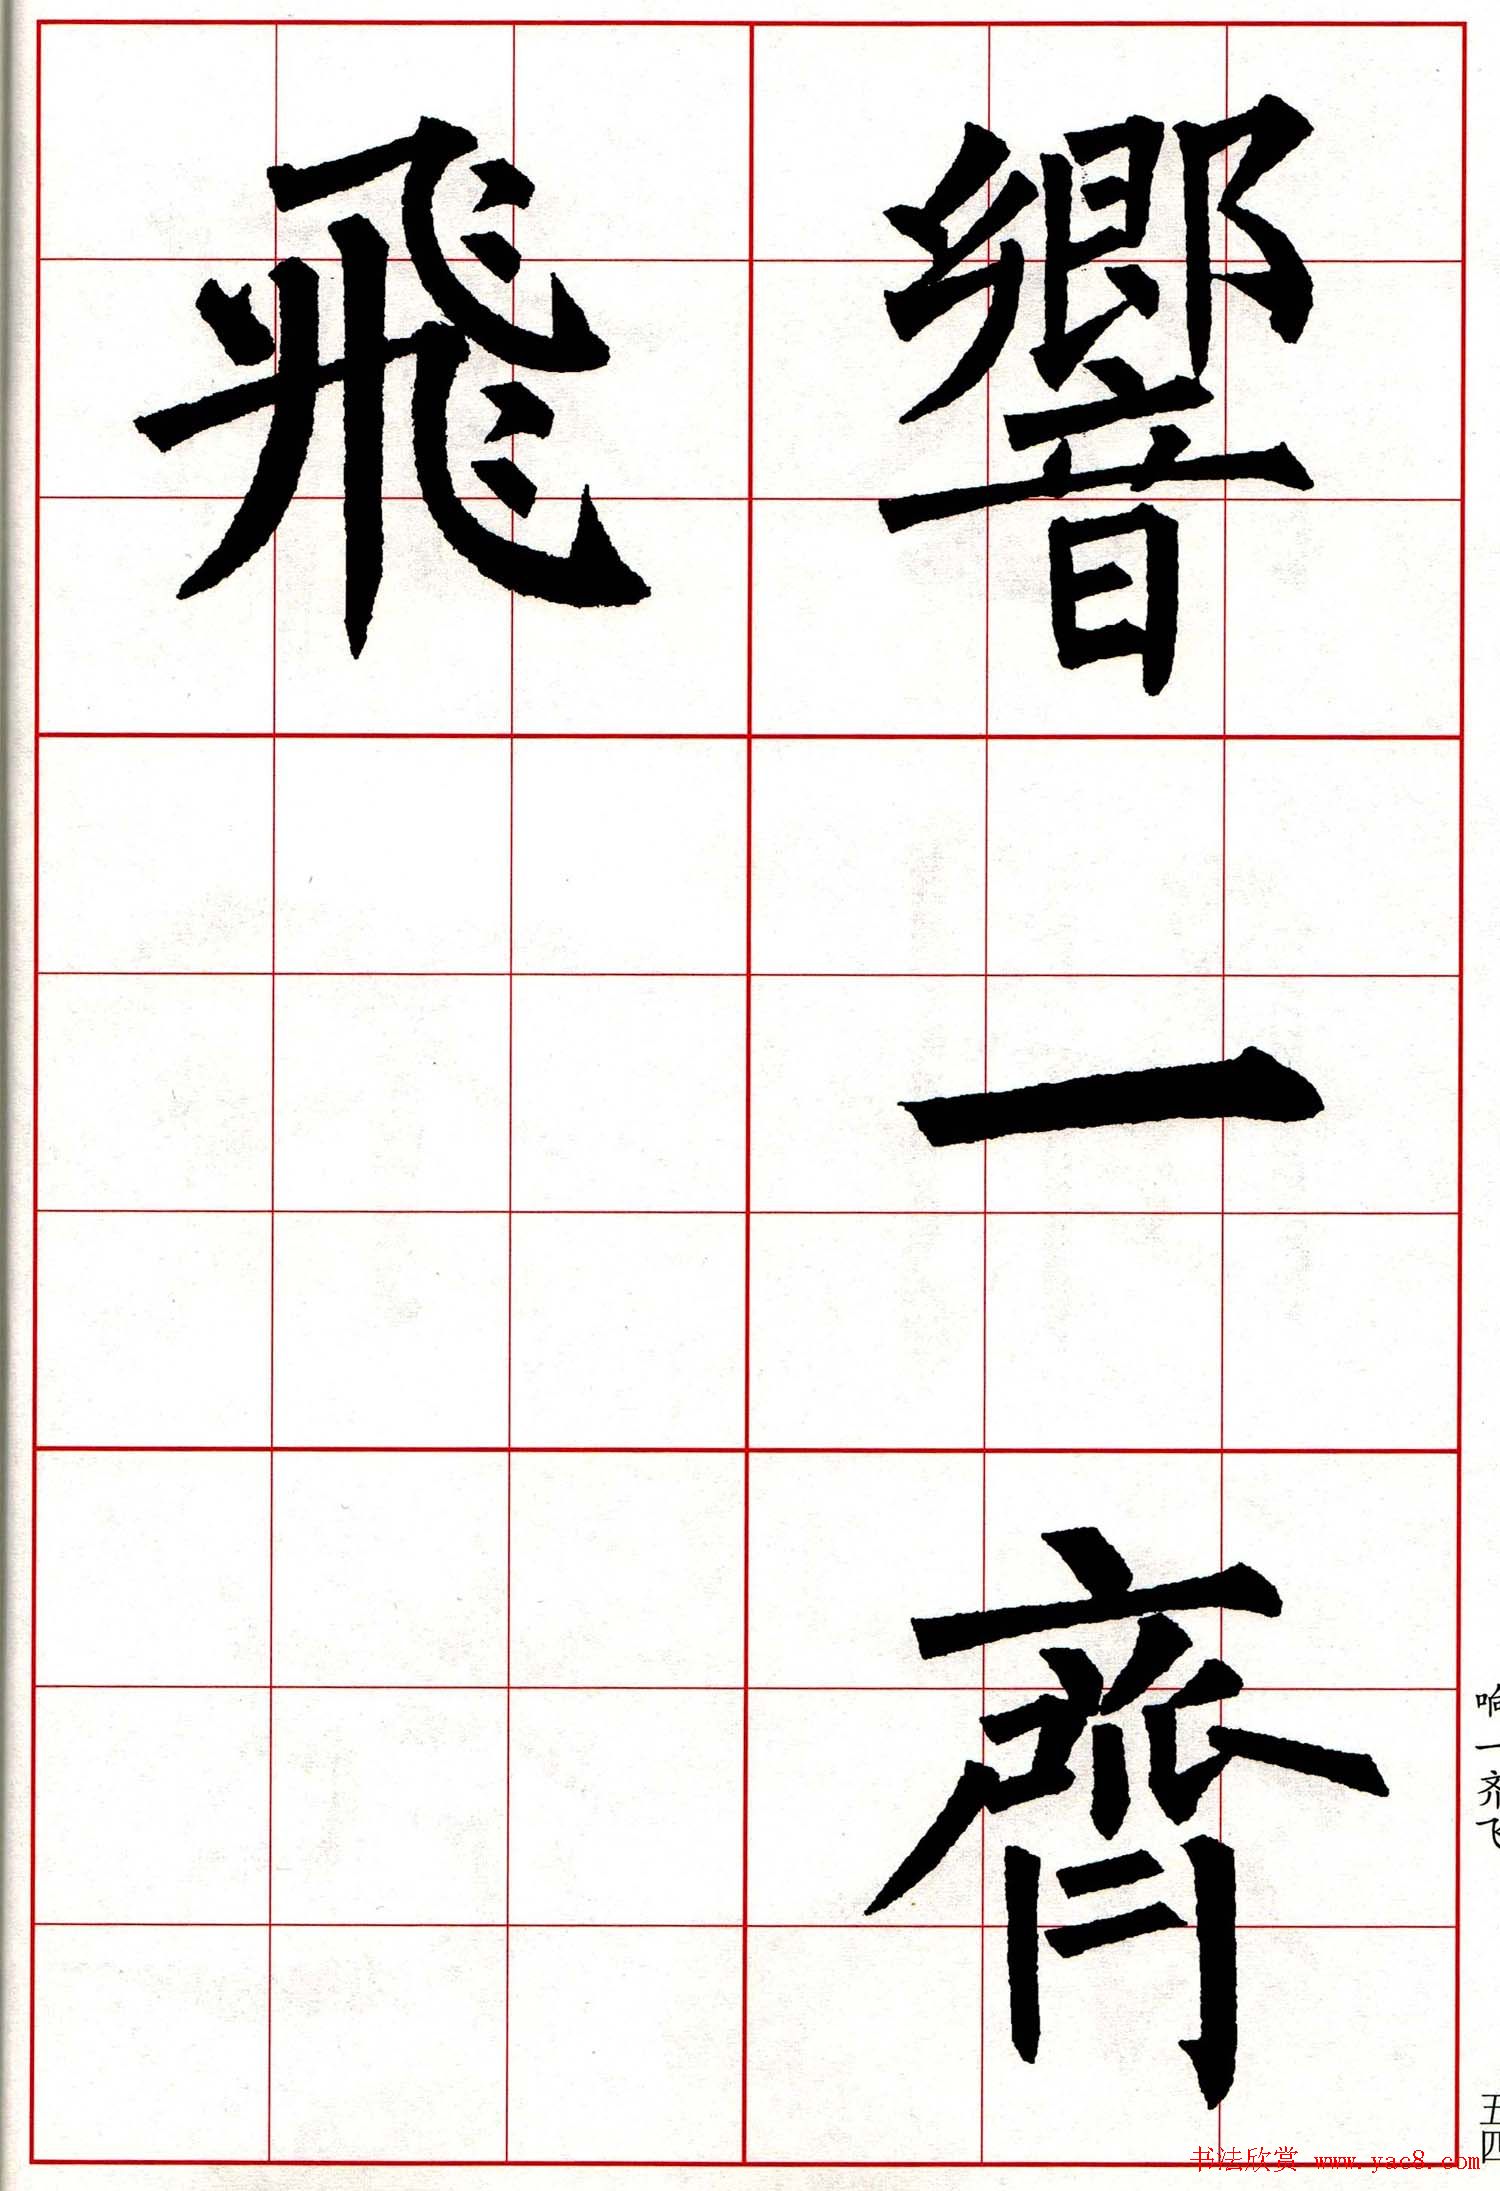 響一齊
飛
响一齐飞
五四
书法欣赏 www.yac8.com